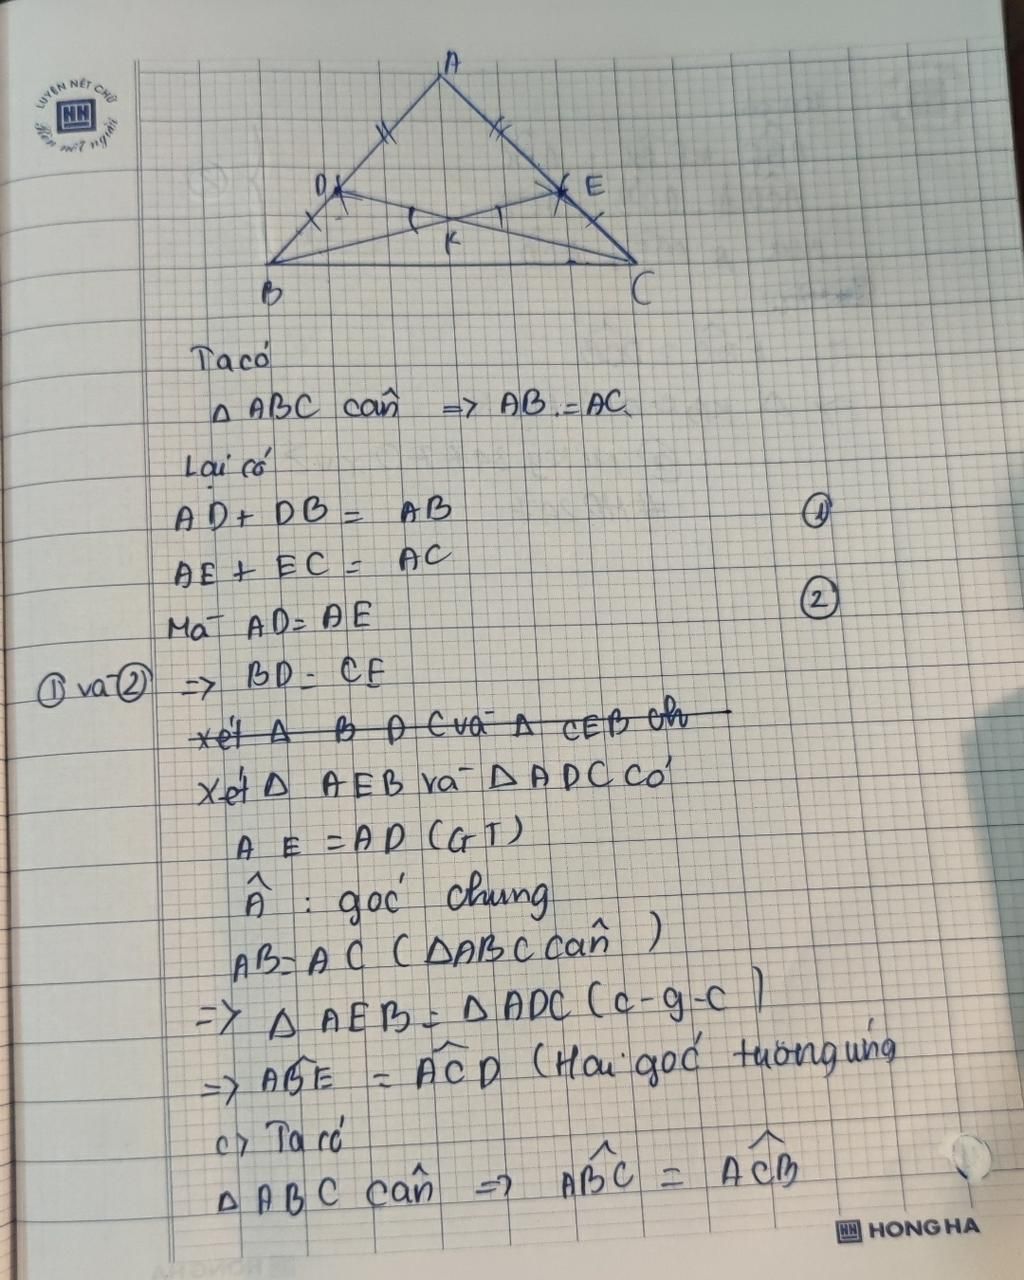 LUYỆN NÉT CHỮ
Rèn nết người
A
D
E
K
B
C
Ta có
Δ ABC cân => AB = AC
Lại có
AD + DB = AB ①
AE + EC = AC
Mà AD = AE ②
① và ② => BD = CE
Xét Δ BDC và Δ CEB ch
Xét Δ AEB và Δ ADC có
AE = AD (GT)
Â : góc chung
AB = AC (ΔABC cân)
=> Δ AEB = Δ ADC (c-g-c)
=> ABE = ACD (Hai góc tương ứng
c> Ta có
Δ ABC cân => ABC = ACB
HONG HA